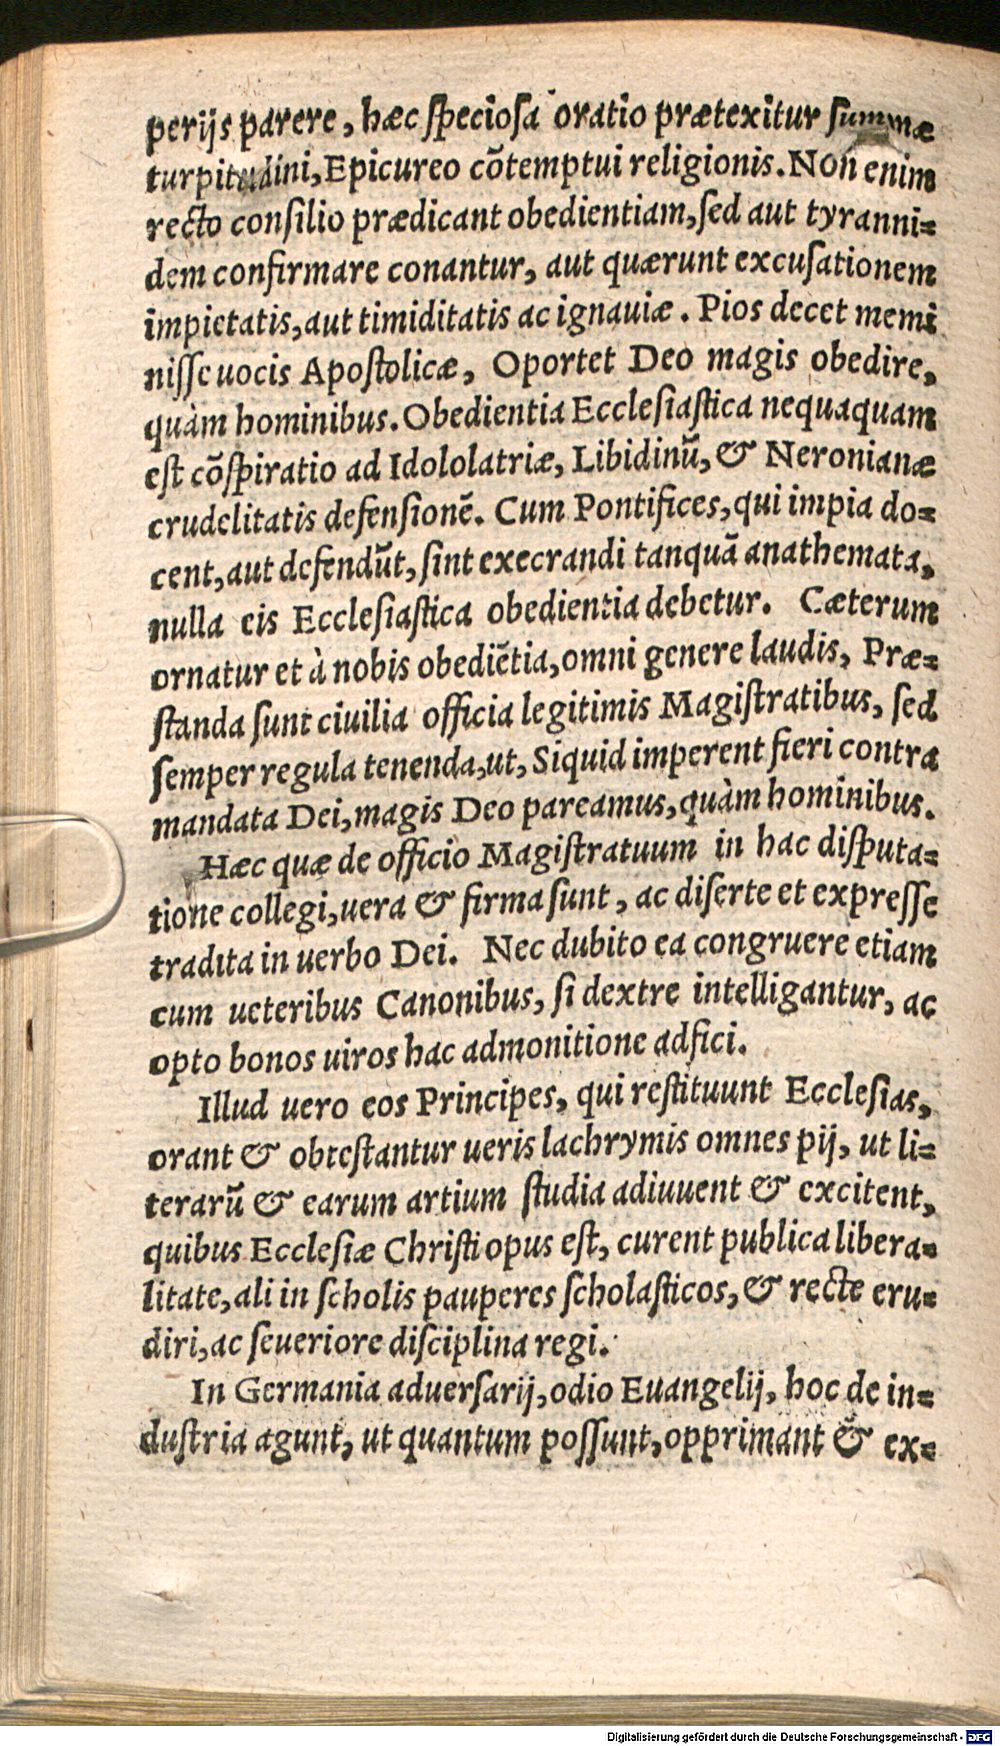 perijs parere, hæc ſpecioſa oratio prætexitur ſummæ
turpitudini, Epicureo cõtemptui religionis. Non enim
recto conſilio prædicant obedientiam, ſed aut tyranni-
dem confirmare conantur, aut quærunt excuſationem
impietatis, aut timiditatis ac ignauiæ. Pios decet memi
niſſe uocis Apoſtolicæ, Oportet Deo magis obedire,
quàm hominibus. Obedientia Eccleſiaſtica nequaquam
eſt cõſpiratio ad Idololatriæ, Libidinũ, & Neronianæ
crudelitatis defenſionẽ. Cum Pontifices, qui impia do-
cent, aut defendũt, ſint execrandi tanquã anathemata,
nulla eis Eccleſiaſtica obedientia debetur. Cæterum
ornatur et à nobis obediẽtia, omni genere laudis, Præ-
ſtanda ſunt ciuilia officia legitimis Magiſtratibus, ſed
ſemper regula tenenda, ut, Siquid imperent fieri contra
mandata Dei, magis Deo pareamus, quàm hominibus.
Hæc quæ de officio Magiſtratuum in hac diſputa-
tione collegi, uera & firma ſunt, ac diſerte et expreſſe
tradita in uerbo Dei. Nec dubito ea congruere etiam
cum ueteribus Canonibus, ſi dextre intelligantur, ac
opto bonos uiros hac admonitione adfici.
Illud uero eos Principes, qui reſtituunt Eccleſias,
orant & obteſtantur ueris lachrymis omnes pij, ut li-
terarũ & earum artium ſtudia adiuuent & excitent,
quibus Eccleſiæ Chriſti opus eſt, curent publica libera-
litate, ali in ſcholis pauperes ſcholaſticos, & recte eru-
diri, ac ſeueriore diſciplina regi.
In Germania aduerſarij, odio Euangelij, hoc de in-
duſtria agunt, ut quantum poſſunt, opprimant & ex-
Digitalisierung gefördert durch die Deutsche Forschungsgemeinschaft - DFG